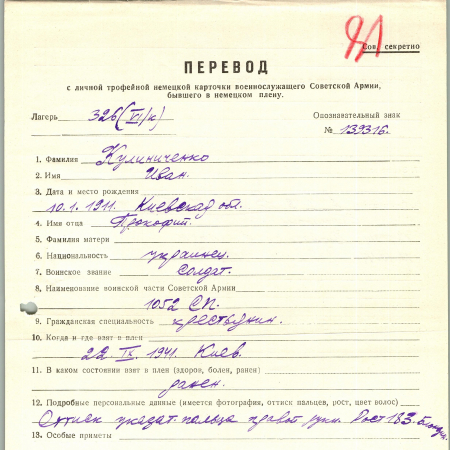 Сов. секретно
ПЕРЕВОД
с личной трофейной немецкой карточки военнослужащего Советской Армии,
бывшего в немецком плену.
Лагерь 326 (VI/к) Опознавательный знак
№ 139316.
1. Фамилия Кулиниченко
2. Имя Иван.
3. Дата и место рождения
10.1.1911. Киевская обл.
4. Имя отца Прокофий.
5. Фамилия матери
6. Национальность украинец.
7. Воинское звание солдат.
8. Наименование воинской части Советской Армии
1052 СП.
9. Гражданская специальность крестьянин.
10. Когда и где взят в плен
22. IX. 1941. Киев.
11. В каком состоянии взят в плен (здоров, болен, ранен)
ранен.
12. Подробные персональные данные (имеется фотография, оттиск пальцев, рост, цвет волос)
Оттиск указат. пальца правой руки. Рост 183.
13. Особые приметы